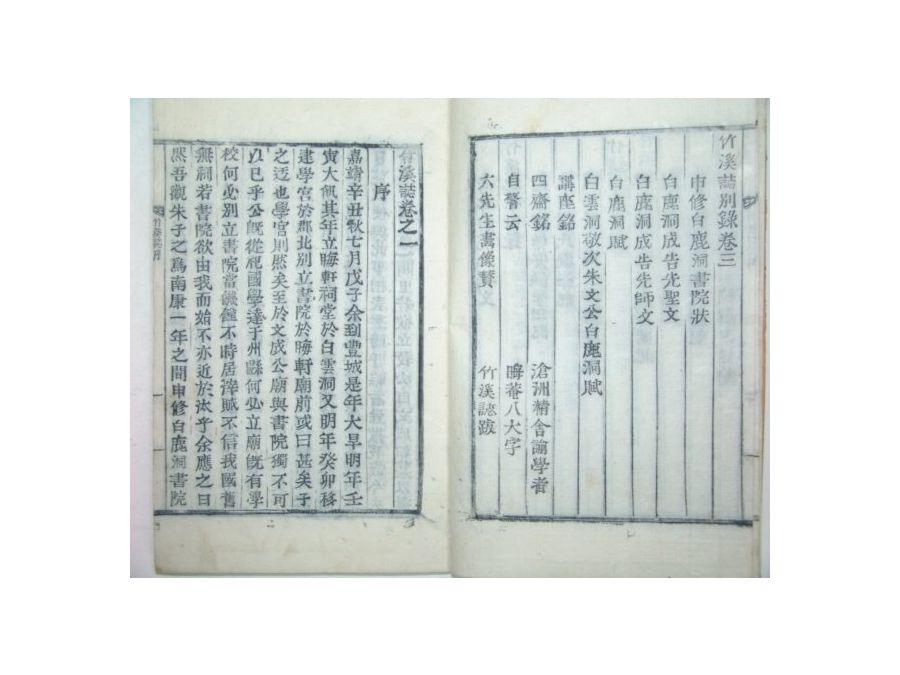 竹溪誌別錄卷三
申修白鹿洞書院狀
白鹿洞成告先聖文
白鹿洞成告先師文
白鹿洞賦
白雲洞敬次朱文公白鹿洞賦
講座銘
四齋銘 滄洲精舍諭學者
自警云 晦菴八大字
六先生畵像贊 竹溪誌跋
竹溪誌卷之一
序
嘉靖辛丑秋七月戊子余到豊城是年大旱明年壬
寅大飢其年立晦軒祠堂於白雲洞又明年癸卯移
建學宮於郡北別立書院於晦軒廟前或曰甚矣子
之迂也學宮則然矣至於文成公廟與書院獨不可
以已乎公旣從祀國學達于州縣何必立廟旣有學
校何必別立書院當饑饉不時居滓賦不信我國舊
無祠若書院欲由我而始不亦近於汰乎余應之曰
然吾觀朱子之爲南康一年之間申修白鹿洞書院